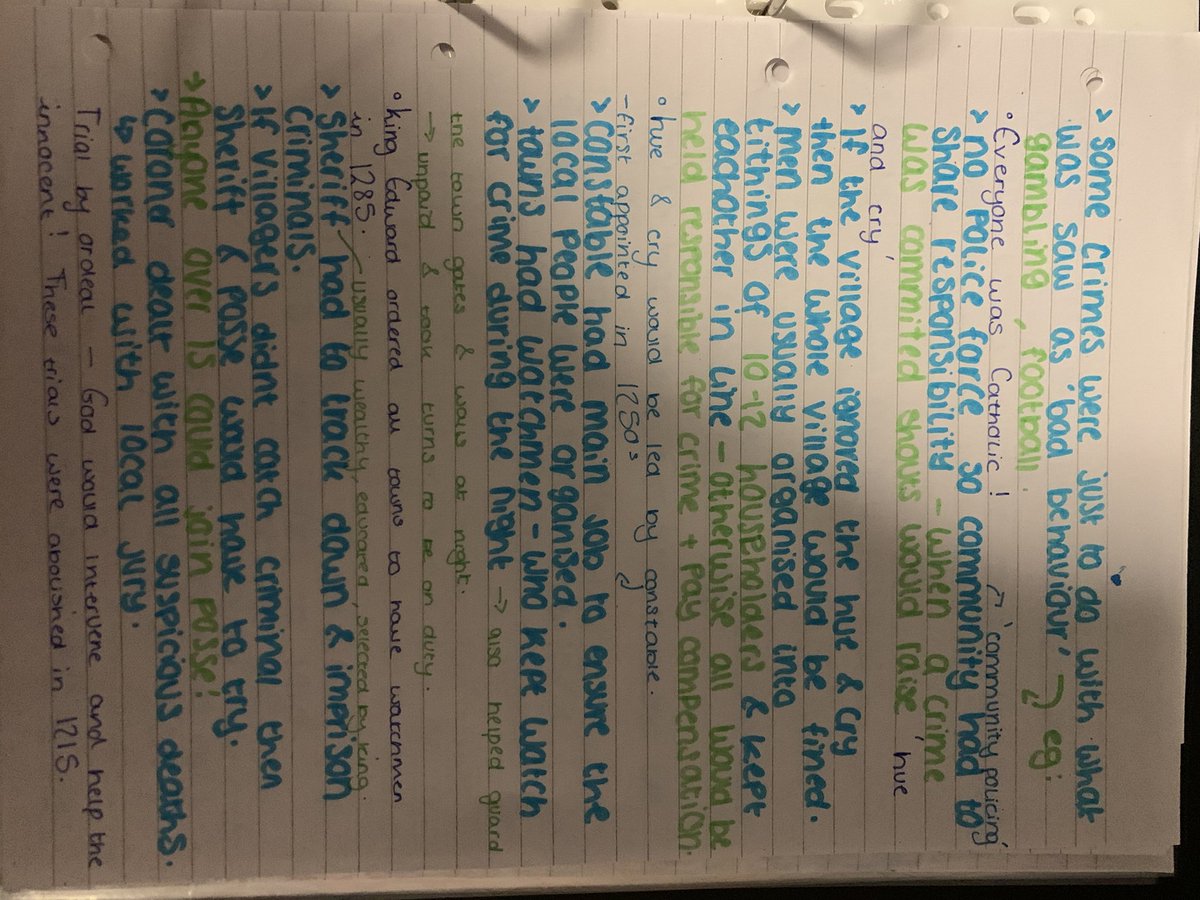 > some crimes were just to do with what
was saw as 'bad behaviour' eg:
gambling, football.
• Everyone was Catholic! ↗ 'community policing'
> no police force so community had to
share responsibility - when a crime
was committed shouts would raise 'hue
and cry'
> If the village ignored the hue & cry
then the whole village would be fined.
> men were usually organised into
tithings of 10-12 householders & kept
eachother in line - otherwise all would be
held responsible for crime + pay compensation.
• hue & cry would be led by constable.
- first appointed in 1250s
> constable had main job to ensure the
local people were organised.
> towns had watchmen - who kept watch
for crime during the night → also helped guard
the town gates & walls at night.
→ unpaid & took turns to be on duty.
• King Edward ordered all towns to have watchmen
in 1285. - usually wealthy, educated, selected by king.
> Sheriff had to track down & imprison
criminals.
> If villagers didnt catch criminal then
sheriff & posse would have to try.
→ Anyone over 15 could join posse!
> coroner dealt with all suspicious deaths.
↳ worked with local jury.
Trial by ordeal - God would intervene and help the
innocent! These trials were abolished in 1215.